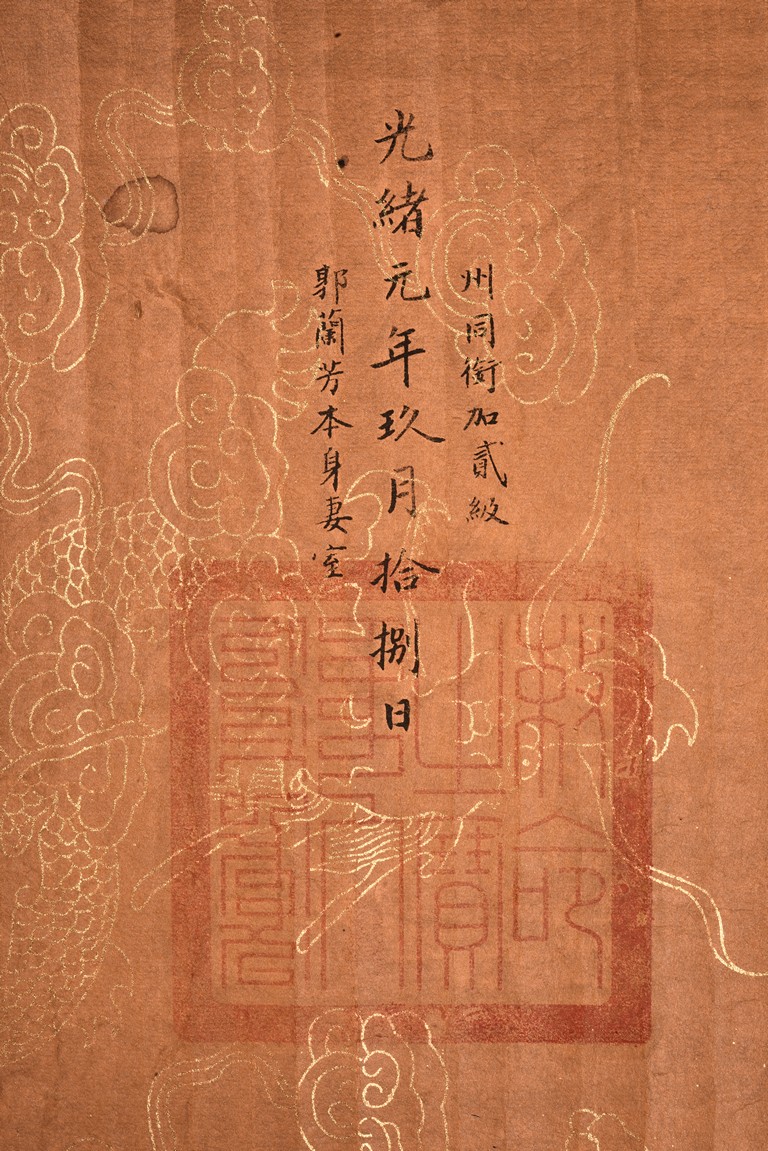 州同銜加貳級
光緒元年玖月拾捌日
郭蘭芳本身妻室
敕命之寶